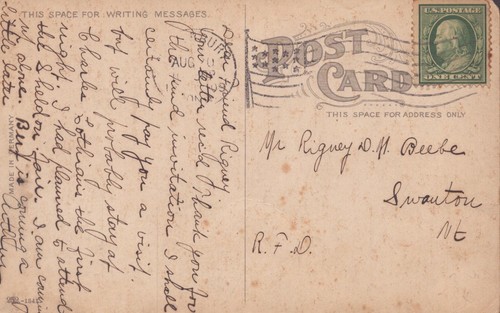 THIS SPACE FOR WRITING MESSAGES.
Dear Friend Rigney
Your letter recd thank you for
the kind invitation I shall
certainly pay you a visit.
but will probably stay at
Charles the first
night. I had planned to attend
the Sheldon Fair. I am coming
alone. Bert is coming a
little later
MADE IN GERMANY
AUG
POST
CARD
THIS SPACE FOR ADDRESS ONLY
U.S. POSTAGE
ONE CENT
Mr Rigney D. H. Beebe
Swanton
Vt
R.F.D.